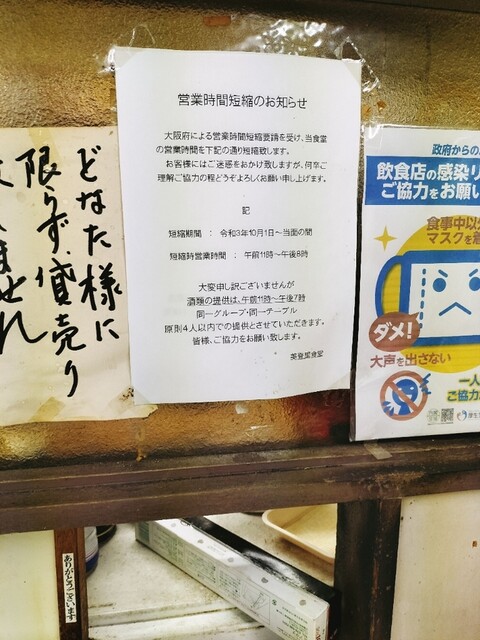 営業時間短縮のお知らせ
大阪府による営業時間短縮要請を受け、当食堂
の営業時間を下記の通り短縮致します。
お客様にはご迷惑をおかけ致しますが、何卒ご
理解ご協力の程どうぞよろしくお願い申し上げます。
記
短縮期間 : 令和3年10月1日～当面の間
短縮時営業時間 : 午前11時～午後8時
大変申し訳ございませんが
酒類の提供は、午前11時～午後7時
同一グループ・同一テーブル
原則4人以内での提供とさせていただきます。
皆様、ご協力をお願い致します。
英登里食堂
どなた様に
限らず、貸売り
ません
政府からの
飲食店の感染リ
ご協力をお願い
食事中以
マスクを
ダメ!
大声を出さない
一人
ご協力
ありがとうございます